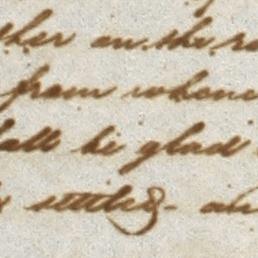 ther on the
from whence
hall be glad
settled - an